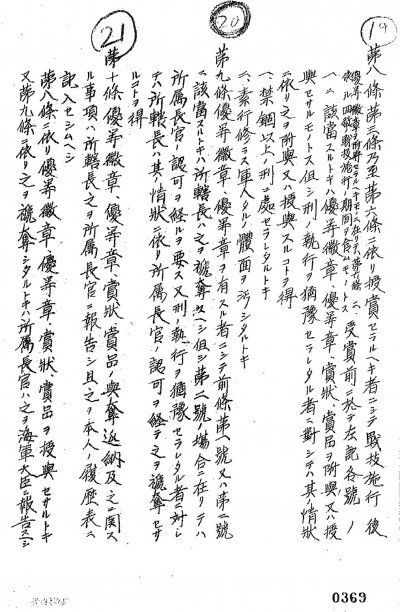 19
第八條 第三條乃至第六條ニ依リ授賞セラルヘキ者ニシテ戰技施行後
優等徽章ヲ附與セラルヘキモノニ在リテハ第六條ニ
依ル四級 期技施行ノ期間ヲ含ムモノトス
受賞前ニ於テ左記各號ノ
一ニ該當スルトキハ優等徽章、優等章、賞狀、賞品ヲ附與又ハ授
與セサルモノトス但シ刑ノ執行ヲ猶豫セラレタル者ニ對シテハ其ノ情狀
ニ依リ之ヲ附與又ハ授與スルコトヲ得
一、禁錮以上ノ刑ニ處セラレタルトキ
二、素行修ラス軍人タルノ體面ヲ汚シタルトキ
20
第九條 優等徽章、優等章ヲ有スル者ニシテ前條第一號又ハ第二號
ニ該當スルトキハ所轄長ハ之ヲ褫奪スヘシ但シ第二號ノ場合ニ在リテハ
所属長官ノ認可ヲ経ルヲ要ス又刑ノ執行ヲ猶豫セラレタル者ニ對シ
テハ所轄長ハ其ノ情狀ニ依リ所属長官ノ認可ヲ経テ之ヲ褫奪セサ
ルコトヲ得
21
第十條 優等徽章、優等章、賞狀、賞品ノ與奪、返納及之ニ関ス
ル事項ハ所轄長之ヲ所属長官ニ報告シ且之ヲ本人ノ履歴表ニ
記入セシムヘシ
第八條ニ依リ優等徽章、優等章、賞狀、賞品ヲ授與セサルトキ
又第九條ニ依リ之ヲ褫奪シタルトキハ所属長官ハ之ヲ海軍大臣ニ報告スヘシ
0369